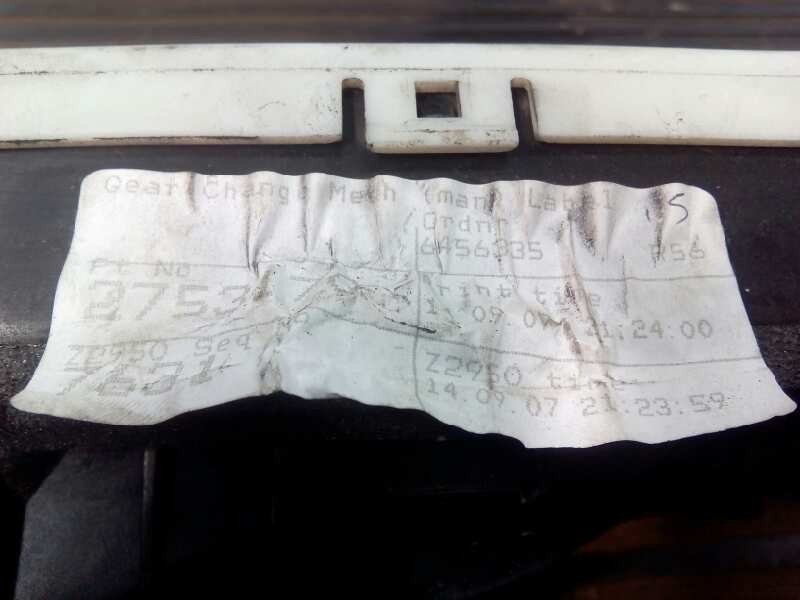 Gear Change Mech (man) Label
Ordnr
6456335 R56
Pt No
Print time
09.07 21:24:00
Z2950 Seq
Z2950 time
14.09.07 21:23:59